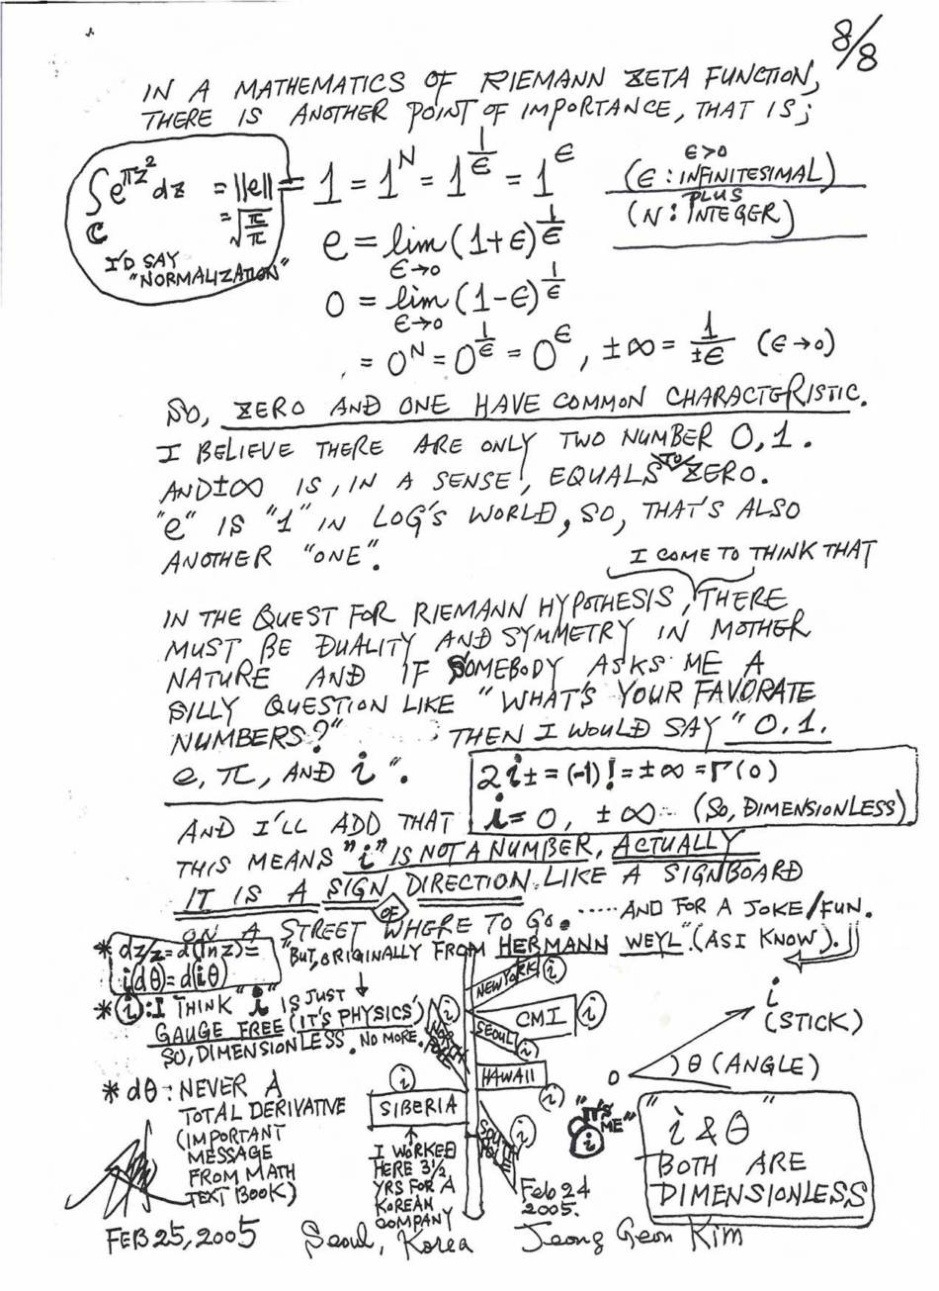 8/8
IN A MATHEMATICS OF RIEMANN ZETA FUNCTION,
THERE IS ANOTHER POINT OF IMPORTANCE, THAT IS;
∫ e^{πz²} dz = ||e|| = 1 = 1^N = 1^{1/ε} = 1^ε
ℂ
= √(π/π)
I'D SAY
"NORMALIZATION"
ε>0
(ε: INFINITESIMAL)
PLUS
(N: INTEGER)
e = lim (1+ε)^{1/ε}
ε→0
0 = lim (1-ε)^{1/ε}
ε→0
= 0^N = 0^{1/ε} = 0^ε, ±∞ = 1/±ε (ε→0)
SO, ZERO AND ONE HAVE COMMON CHARACTERISTIC.
I BELIEVE THERE ARE ONLY TWO NUMBER 0,1.
AND ±∞ IS, IN A SENSE, EQUALS TO ZERO.
"e" IS "1" IN LOG'S WORLD, SO, THAT'S ALSO
ANOTHER "ONE".
I COME TO THINK THAT
IN THE QUEST FOR RIEMANN HYPOTHESIS, THERE
MUST BE DUALITY AND SYMMETRY IN MOTHER
NATURE AND IF SOMEBODY ASKS ME A
SILLY QUESTION LIKE "WHAT'S YOUR FAVORATE
NUMBERS?" THEN I WOULD SAY "0.1.
e, π, AND i".
2i± = (-1)! = ±∞ = Γ(0)
i = 0, ±∞ (SO, DIMENSIONLESS)
AND I'LL ADD THAT
THIS MEANS "i" IS NOT A NUMBER, ACTUALLY
IT IS A SIGN OF DIRECTION LIKE A SIGNBOARD
ON A STREET WHERE TO GO. ..... AND FOR A JOKE/FUN.
"BUT, ORIGINALLY FROM HERMANN WEYL". (AS I KNOW).
* dz/z = d(ln z) =
i(dθ) = d(iθ)
* (i): I THINK "i" IS JUST
GAUGE FREE (IT'S PHYSICS)
SO, DIMENSIONLESS. NO MORE.
* dθ: NEVER A
TOTAL DERIVATIVE
(IMPORTANT
MESSAGE
FROM MATH
TEXT BOOK)
NEW YORK i
i CMI i
SEOUL i
NORTH POLE
HAWAII i
i
SIBERIA
SOUTH POLE i
I WORKED
HERE 3½
YRS FOR A
KOREAN
COMPANY
"IT'S
ME"
i
Feb 24
2005.
i
(STICK)
0
θ (ANGLE)
"i & θ"
BOTH ARE
DIMENSIONLESS
FEB 25, 2005 Seoul, Korea Jeong Geon Kim